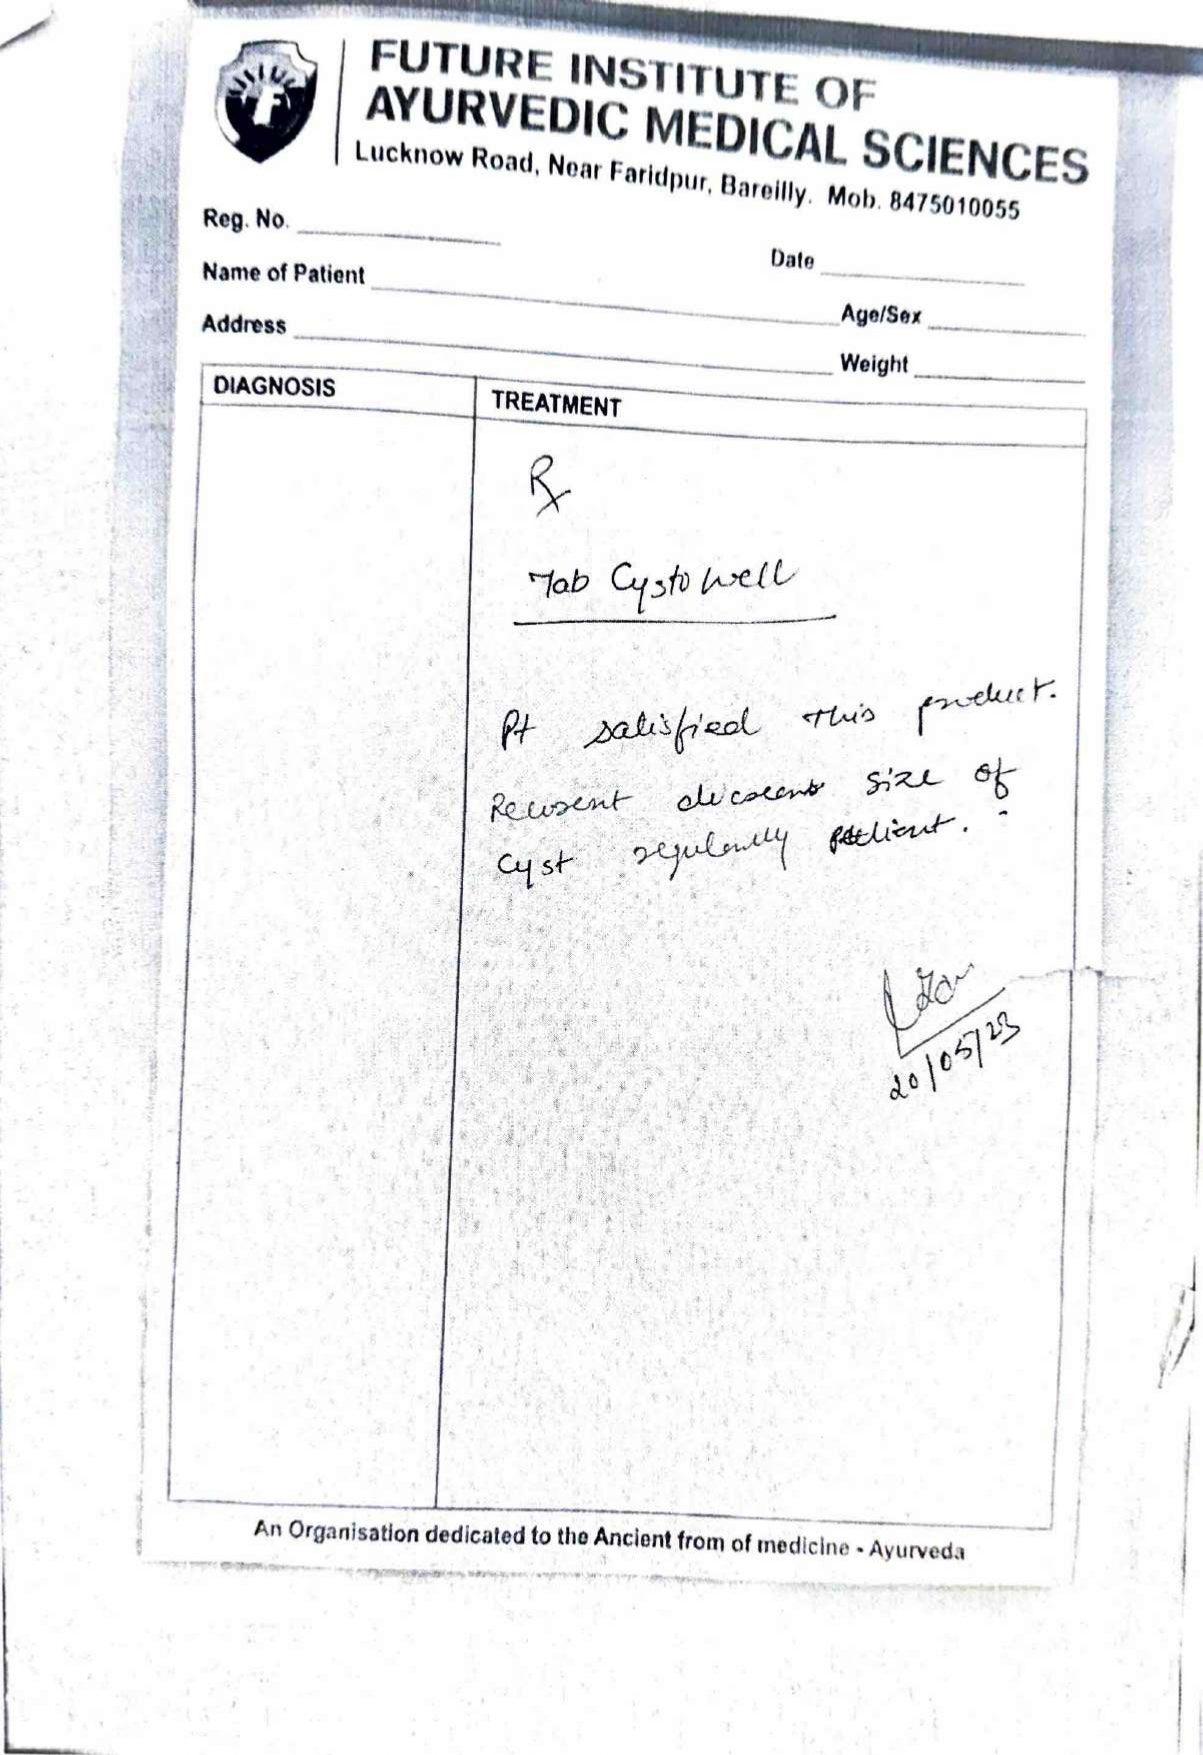 FUTURE INSTITUTE OF
AYURVEDIC MEDICAL SCIENCES
Lucknow Road, Near Faridpur, Bareilly. Mob. 8475010055
Reg. No.
Date
Name of Patient
Age/Sex
Address
Weight
DIAGNOSIS
TREATMENT
Rx
Tab Cystowell
Pt satisfied this product.
size of
Cyst regularly
20/05/23
An Organisation dedicated to the Ancient from of medicine - Ayurveda